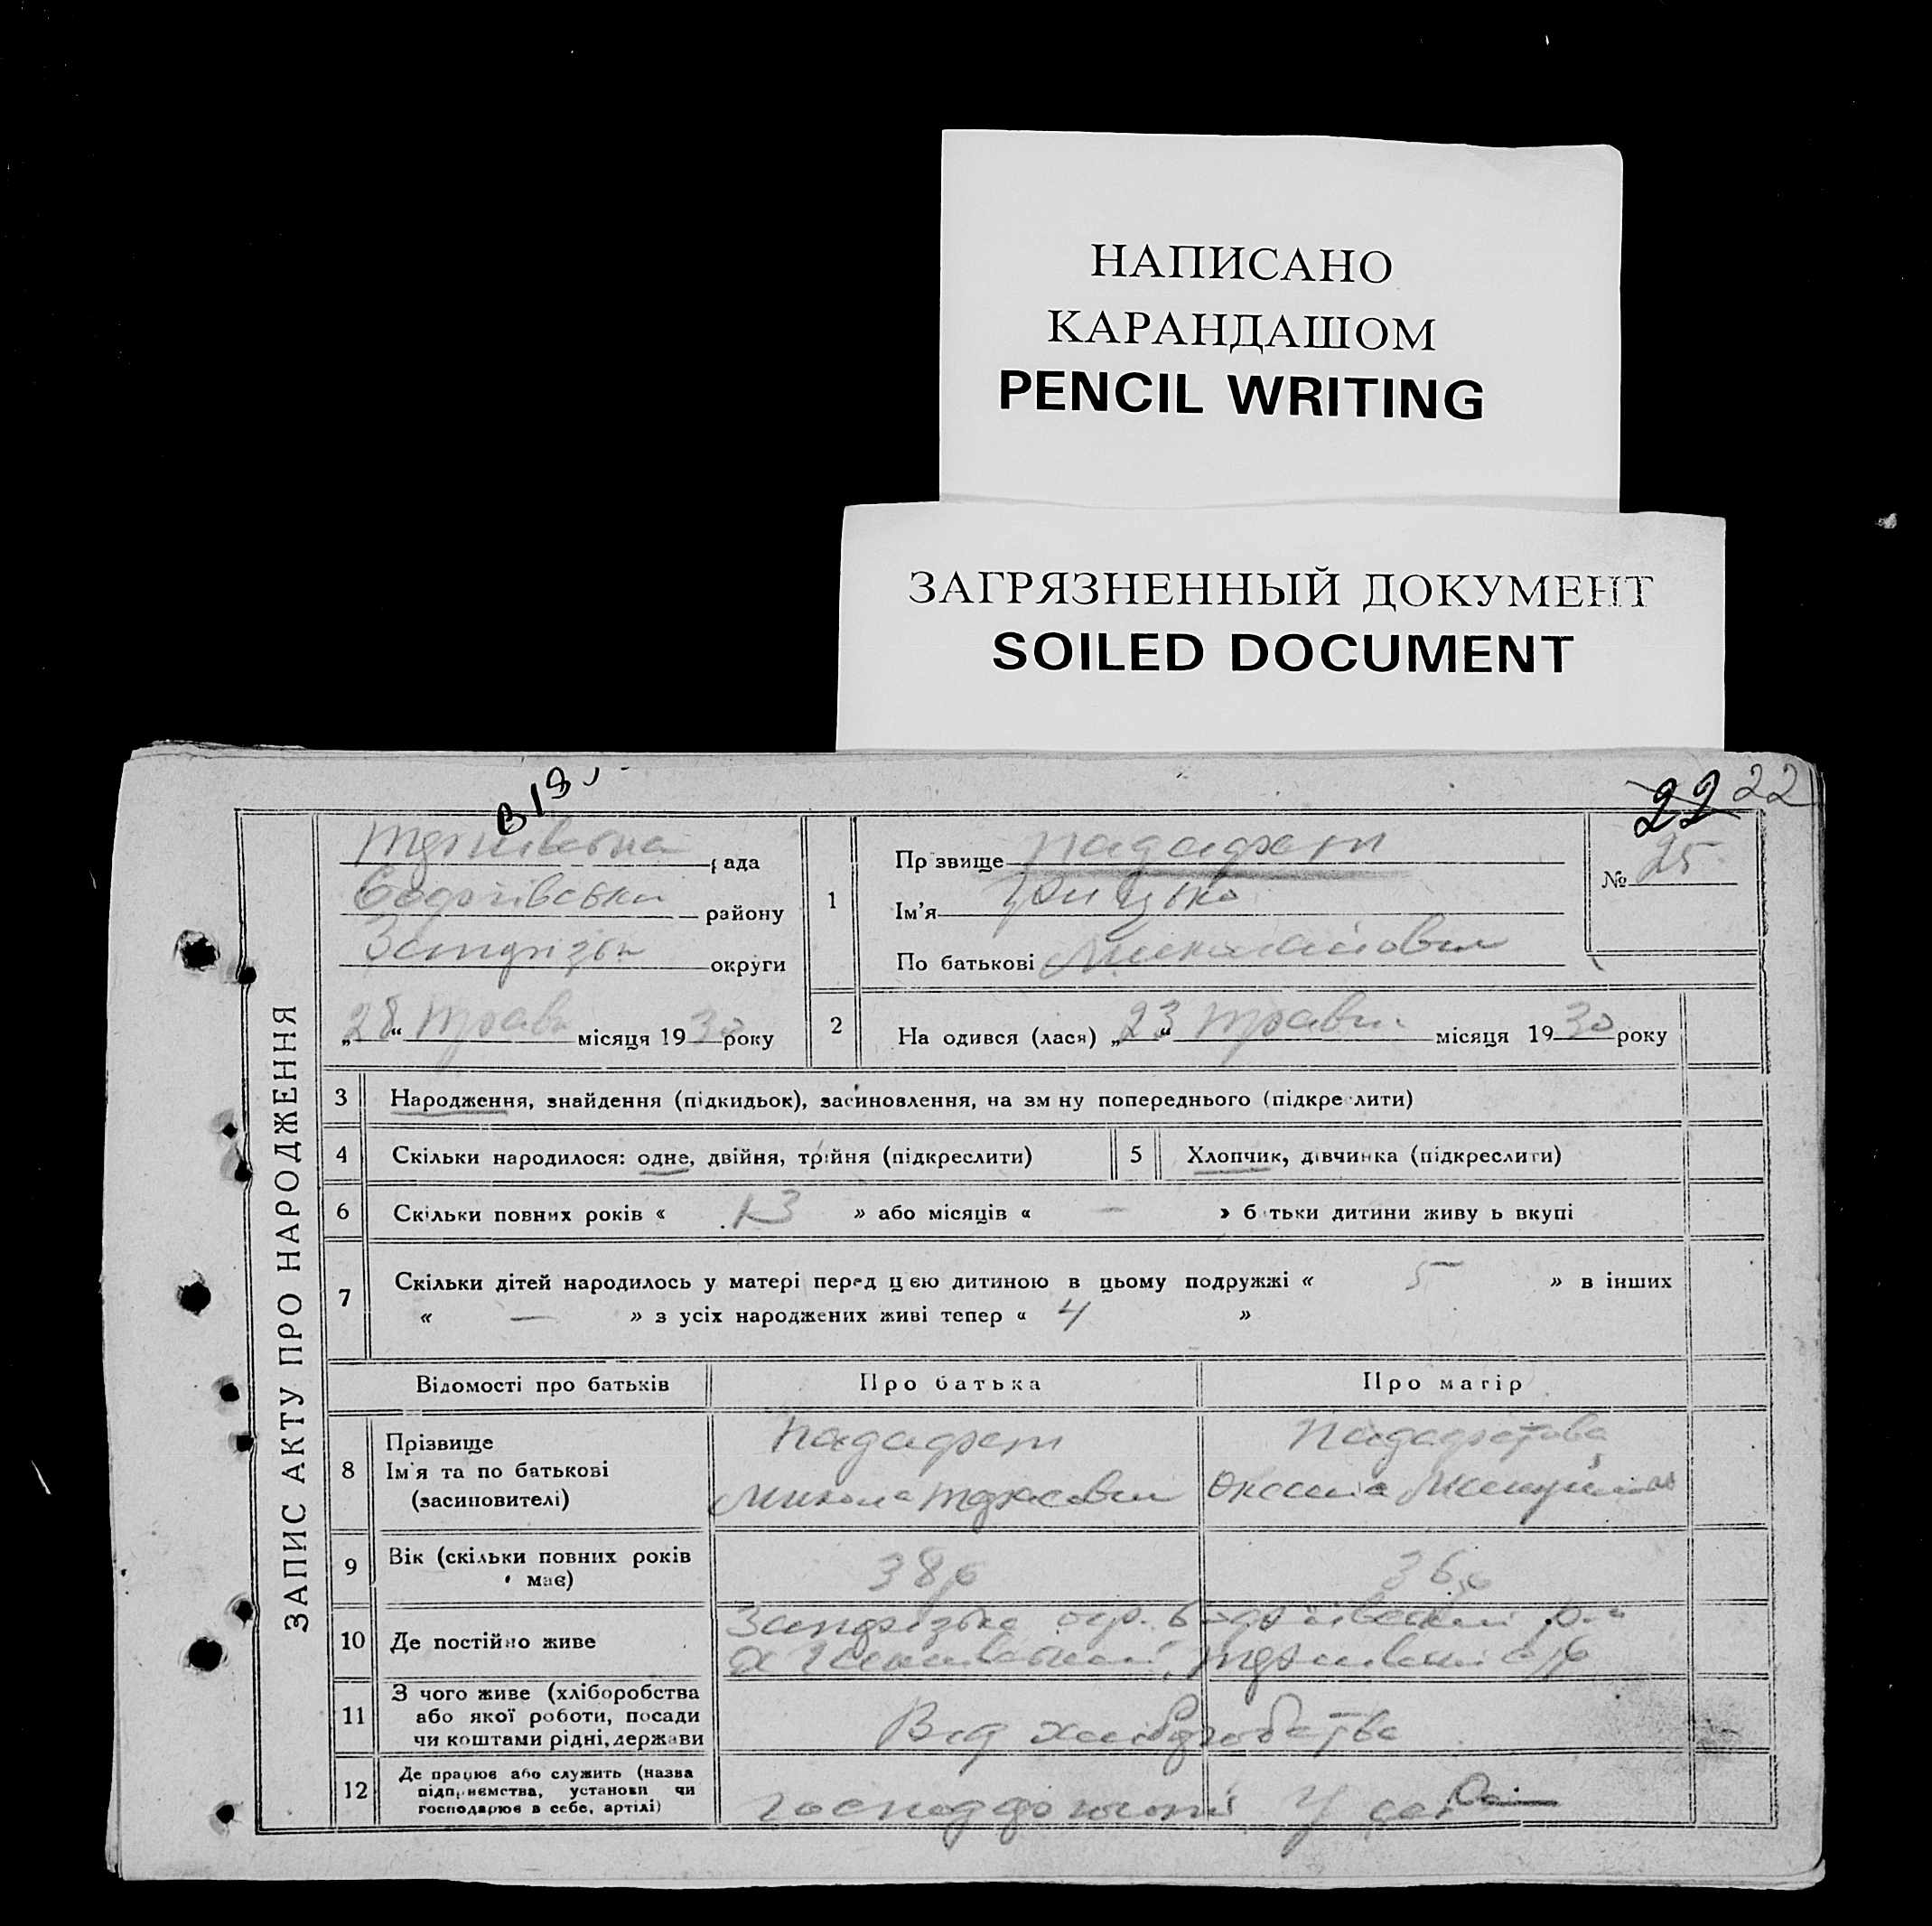 НАПИСАНО
КАРАНДАШОМ
PENCIL WRITING
ЗАГРЯЗНЕННЫЙ ДОКУМЕНТ
SOILED DOCUMENT
22 22
рада
району
округи
„28“ травн місяця 1930 року
ЗАПИС АКТУ ПРО НАРОДЖЕННЯ
1
Прізвище
Ім'я Грицько
По батькові Миколайович
№ 25
2 На одився (лася) „23“ травня місяця 1930 року
3 Народження, знайдення (підкидьок), засиновлення, на зм ну попереднього (підкре лити)
4 Скільки народилося: одне, двійня, трійня (підкреслити)
5 Хлопчик, дівчинка (підкреслити)
6 Скільки повних років « 13 » або місяців « — » б тьки дитини живу ь вкупі
7 Скільки дітей народилось у матері перед цією дитиною в цьому подружжі « 5 » в інших
« — » з усіх народжених живі тепер « 4 »
Відомості про батьків
Про батька
Про матір
8 Прізвище
Ім'я та по батькові
(засиновителі)
Микола Тарасович
Оксана
9 Вік (скільки повних років
має)
38
36
10 Де постійно живе
11 З чого живе (хліборобства
або якої роботи, посади
чи коштами рідні, держави
Від хліборобства
12 Де працює або служить (назва
підприємства, установи чи
господарює в себе, артілі)
У себе